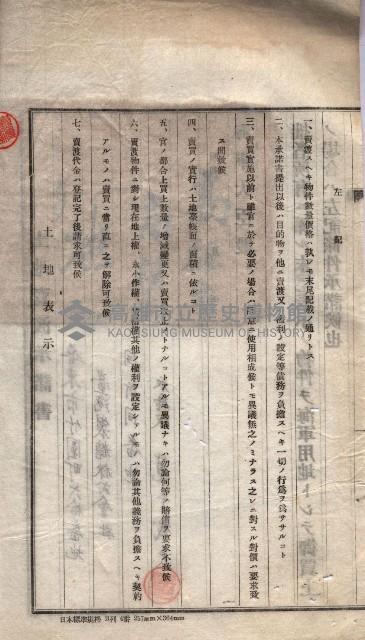 左記
一、賣渡スヘキ物件數量價格ハ執レモ末尾記載ノ通リトス
二、本承諾書提出以後ハ目的物ヲ他ニ賣渡又ハ權利ノ設定等債務ヲ負擔スヘキ一切ノ行爲ヲ爲ササルコト
三、賣買實施以前ト雖官ニ於テ必要ノ場合ハ隨意ニ使用相成候トモ異議無之ノミナラス之レニ對スル對價ハ要求致
ス間敷候
四、賣買ノ實行ハ土地臺帳面ノ面積ニ依ルコト
五、官ノ都合上買上數量ノ增減變更又ハ賣買取止メトナルコトアルモ異議ナキハ勿論何等ノ賠償ヲ要求不致候
六、賣渡物件ニ對シ現在地上權、永小作權、其他ノ權利ヲ設定シアルモノハ勿論其他義務ヲ負擔スヘキ契約
アルモノハ賣買ニ當リ直ニ之ヲ解除可致候
七、賣渡代金ハ登記完了後請求可致候
土地表示
高雄市立歷史博物館
KAOHSIUNG MUSEUM OF HISTORY
日本標準規格 B列 4番 257mm×364mm